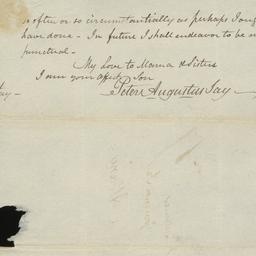 so often or so circumstantially as perhaps I oug
have done - In future I shall endeavor to be m
punctual -
My Love to Mama & Sisters
I am your affect. Son
Peter Augustus Jay
ay -